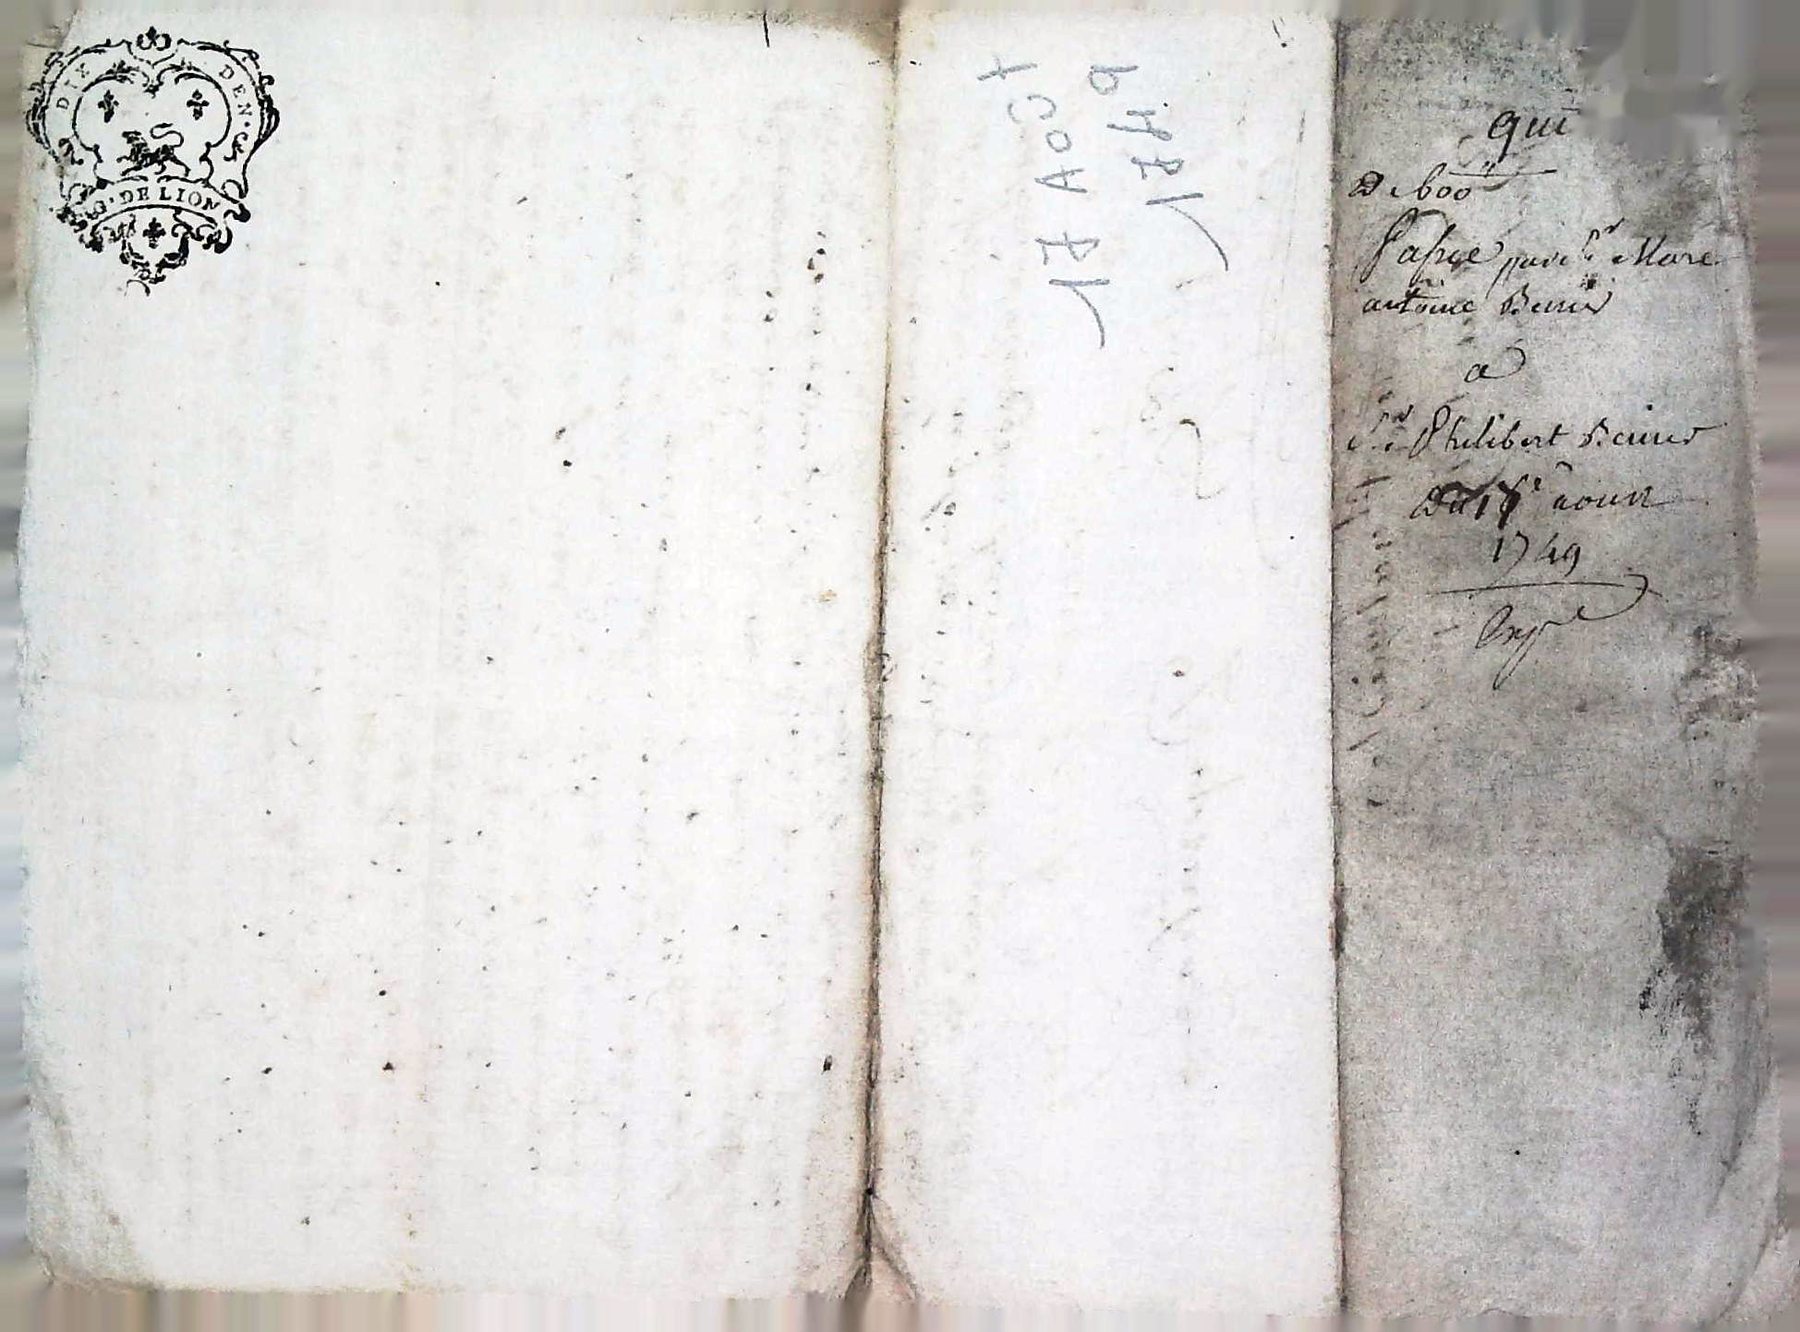 DIX DEN.
G. DE LION
17 AOUT
1749
qui
De 600
Passée par Sr Marc
antoine Berier
a
Sr Philibert Berier
Du 17e aoust
1749